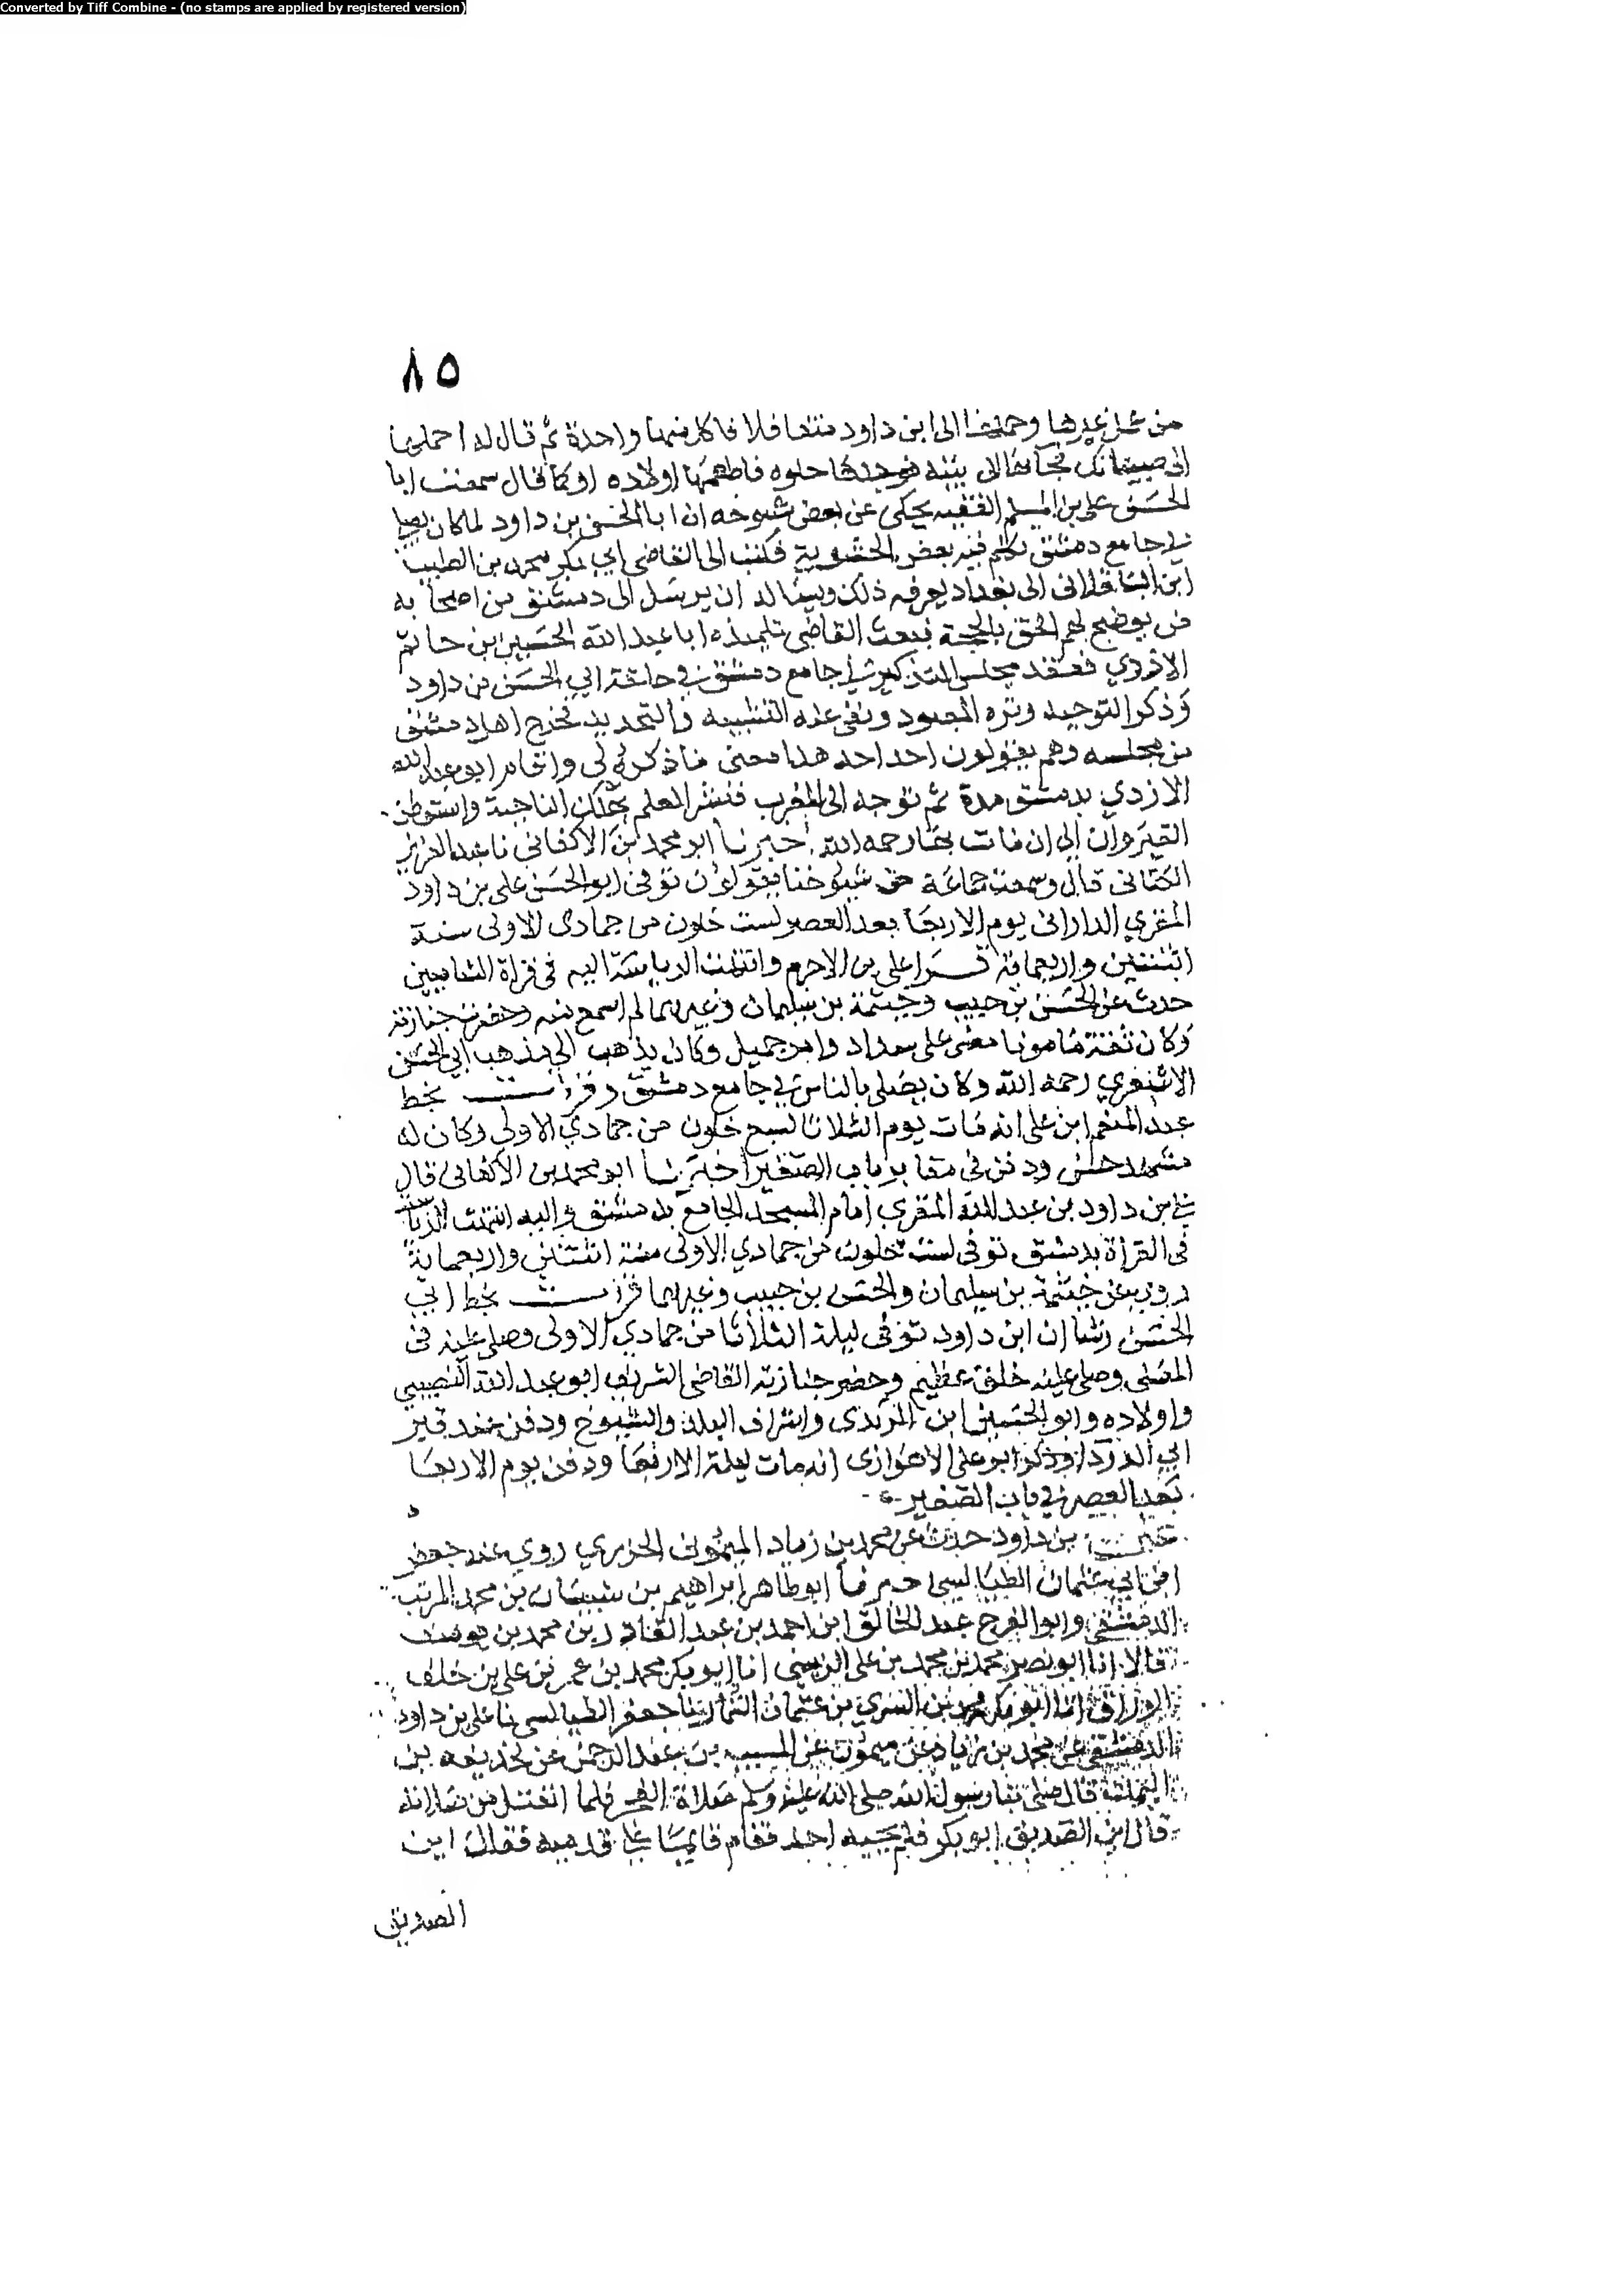 Converted by Tiff Combine - (no stamps are applied by registered version)
٨٥
من غيرها وحملها الى ابن داود فاكل منها واحدة ثم قال له احملها
الى صبيانك فجآ بها الى بيته فوجدها حلوه فاطعمها اولاده او كما قال سمعت ابا
الحسن على بن المسلم الفقيه يحكى عن بعض شيوخه ان ابا الحسن بن داود لما كان يصلي
في جامع دمشق تكلم فيه بعض الحشوية فكتب الى القاضى ابي بكر محمد بن الطيب
ابن الباقلانى الى بغداد يعرفه ذلك ويسأله ان يرسل الى دمشق من اصحابه
من يوضح لهم الحق بالحجة فبعث القاضي تلميذه ابا عبد الله الحسين بن حاتم
الازدي فعقد مجلس التذكير في جامع دمشق في حلقة ابي الحسن بن داود
وذكر التوحيد ونزه المعبود ونفى عنه التشبيه والتحديد فخرج اهل دمشق
من مجلسه وهم يقولون احد احد هذا معنى ما ذكره لى واقام ابو عبد الله
الازدي بدمشق مدة ثم توجه الى المغرب فنشر العلم بتلك الناحية واستوطن
القيروان الى ان مات بها رحمه الله اخبرنا ابو محمد بن الاكفانى نا عبد العزيز
الكتانى قال وسمعت جماعة من شيوخنا يقولون توفى ابو الحسن على بن داود
المقري الدارانى يوم الاربعا بعد العصر لست خلون من جمادى الاولى سنة
اثنتين واربعمائة قرا على بن الاخرم وانتهت الرياسة اليه فى قراة الشاميين
حدث عن الحسن بن حبيب وخيثمة بن سليمان وغيرهما لم اسمع منه وحضرت جنازته
وكان ثقة مامونا مضى على سداد وامر جميل وكان يذهب الى مذهب ابي الحسن
الاشعري رحمه الله وكان يصلى بالناس في جامع دمشق وقرات بخط
عبد المنعم ابن على انه مات يوم الثلاثا لسبع خلون من جمادي الاولى وكان له
مشهد حسن ودفن فى مقابر باب الصغير اخبرنا ابو محمد بن الاكفانى قال
على بن داود بن عبد الله المقري امام المسجد الجامع بدمشق واليه انتهت الرياسة
فى القراة بدمشق توفى لست خلون من جمادي الاولى سنة اثنتين واربعمائة
روى عن خيثمة بن سليمان والحسن بن حبيب وغيرهما قرات بخط ابي
الحسن رشا ان ابن داود توفى ليلة الثلاثا من جمادي الاولى وصلى عليه فى
المصلى وصلى عليه خلق عظيم وحضر جنازته القاضى الشريف ابو عبد الله النصيبي
واولاده وابو الحسين ابن واشراف البلد والشيوخ ودفن عند قبر
ابي الدردا وذكر ابو على الاهوازى انه مات ليلة الاربعا ودفن يوم الاربعا
بعد العصر في باب الصغير
على بن داود حدث عن محمد بن زياد الميمونى الجزري روي عنه جعفر
ابن ابي عثمان الطيالسى اخبرنا ابو طاهر ابراهيم بن شيبان بن محمد المرتب
الدمشقى وابو الفرج عبد الخالق ابن احمد بن عبد القادر بن محمد بن يوسف
قالا انا ابو نصر محمد بن محمد بن على الزينبى انا ابو بكر محمد بن عمر بن على بن خلف
الوراق انا ابو بكر محمد بن السري بن عثمان التمار نا جعفر الطيالسى نا على بن داود
الدمشقى عن محمد بن زياد عن ميمون عن المسيب بن عبد الرحمن عن حذيفه بن
اليمان قال صلى بنا رسول الله صلى الله عليه وسلم صلاة الفجر فلما انفتل من صلاته
قال اين الصديق ابو بكر فلم يجبه احد فقام قائما على قدميه فقال اين
الصديق